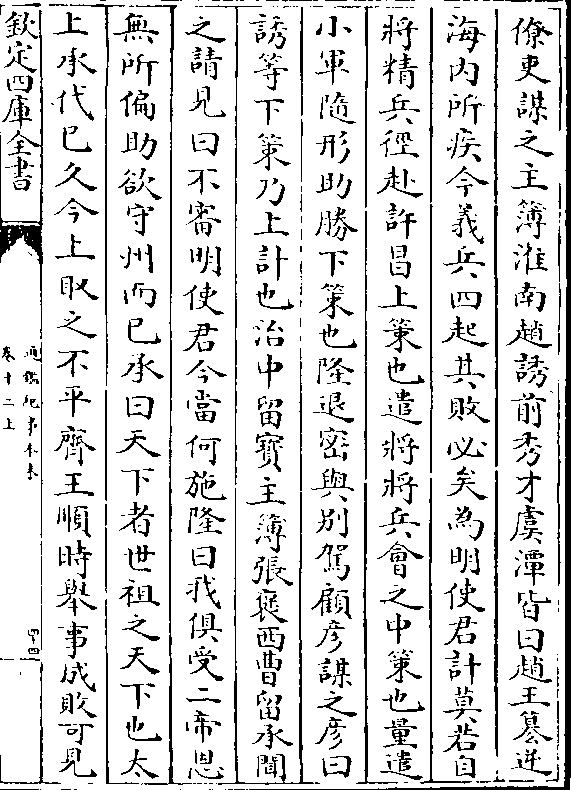 僚吏謀之主簿淮南趙誘前秀才虞潭皆曰趙王簒逆
海内所疾今義兵四起其敗必矣為明使君計莫若自
將精兵徑赴許昌上策也遣將將兵會之中策也量遣
小軍隨形助勝下策也隆退密與别駕顧彦謀之彦曰
誘等下策乃上計也治中留寶主簿張褒西曹留承聞
之請見曰不審明使君今當何施隆曰我俱受二帝恩
無所偏助欲守州而已承曰天下者世祖之天下也太
上承代已久今上取之不平齊王順時舉事成敗可見
欽定四庫全書
通鑑紀事本末
卷十二上
四四